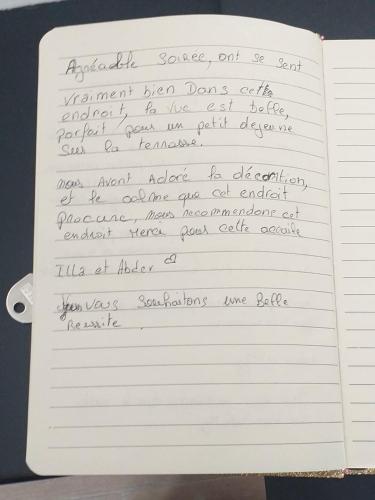 Agréable soirée, ont se sent
vraiment bien Dans cette
endroit, la vue est belle,
parfait pour un petit dejeune
sur la terrasse.
nous Avont Adoré la décoration,
et le calme que cet endroit
procure, nous recommendons cet
endroit merci pour cette accueil
Illa et Abder
vous souhaitons une Belle
Reussite.